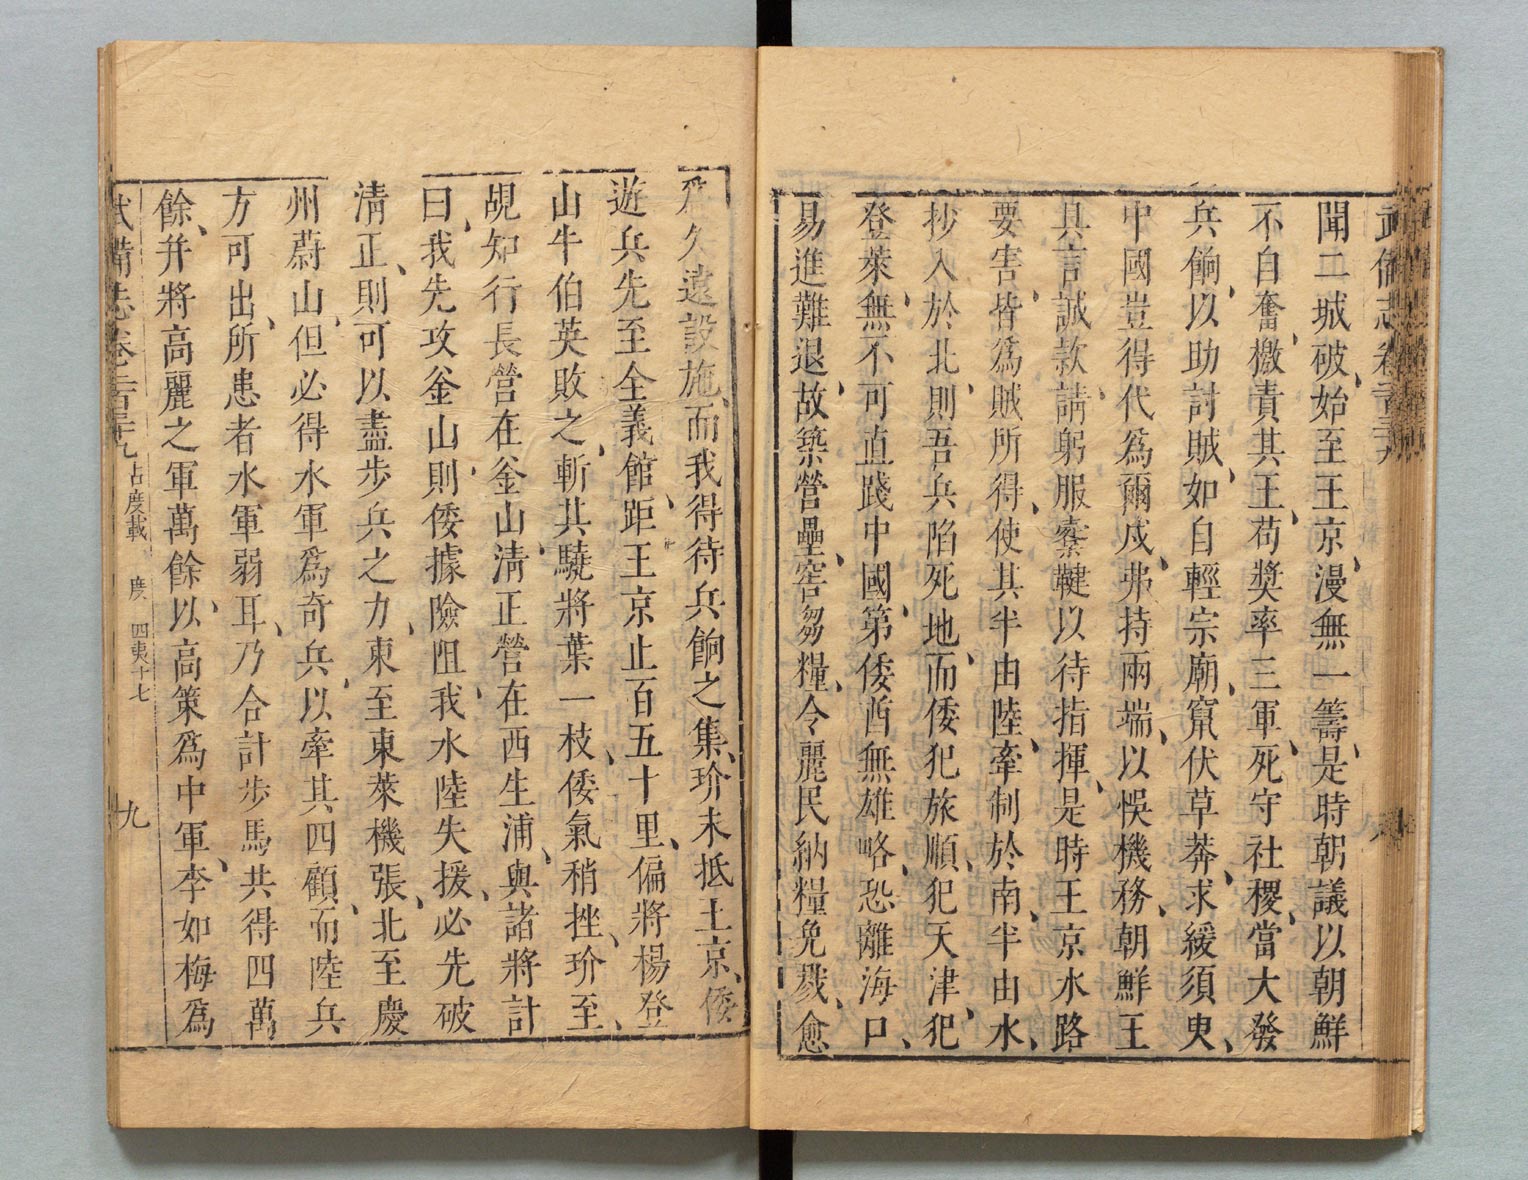 武備志卷二百三十九
聞二城破始至王京漫無一籌是時朝議以朝鮮
不自奮檄責其王苟奬率三軍死守社稷當大發
兵餉以助討賊如自輕宗廟竄伏草莽求緩須臾
中國豈得代爲爾戍弗持兩端以悞機務朝鮮王
具言誠款請躬服櫜鞬以待指揮是時王京水路
要害皆爲賊所得使其半由陸牽制於南半由水
抄入於北則吾兵陷死地而倭犯旅順犯天津犯
登萊無不可直踐中國第倭酋無雄略恐離海口
易進難退故築營壘窖芻糧令麗民納糧免戮愈
爲久遠設施而我得待兵餉之集玠未抵王京倭
遊兵先至全義館距王京止百五十里偏將楊登
山牛伯英敗之斬其驍將葉一枝倭氣稍挫玠至
覘知行長營在釜山淸正營在西生浦與諸將計
曰我先攻釜山則倭據險阻我水陸失援必先破
淸正則可以盡步兵之力東至東萊機張北至慶
州蔚山但必得水軍爲奇兵以牽其四顧而陸兵
方可出所患者水軍弱耳乃合計步馬共得四萬
餘并將高麗之軍萬餘以高策爲中軍李如梅爲
武備志卷二百三十九 占度載 度 四夷十七 九